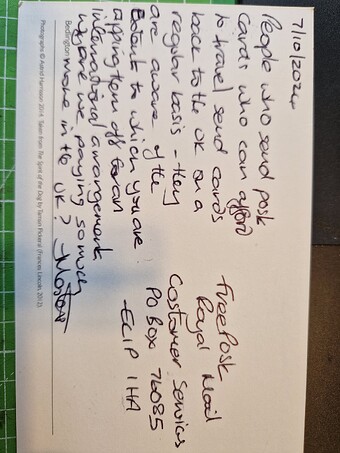 7/10/2024
People who send post
cards who can afford
to travel send cards
back to the UK on a
regular basis - they
are aware of the
to which you are
ripping them off
international arrangements
Why are we paying so much
more in the UK?
FreePost
Royal Mail
Customer Services
PO Box 76085
EC1P 1HA
Bedlington
Photographs © Astrid Harrisson 2014. Taken from The Spirit of the Dog by Tamsin Pickeral (Frances Lincoln, 2012).